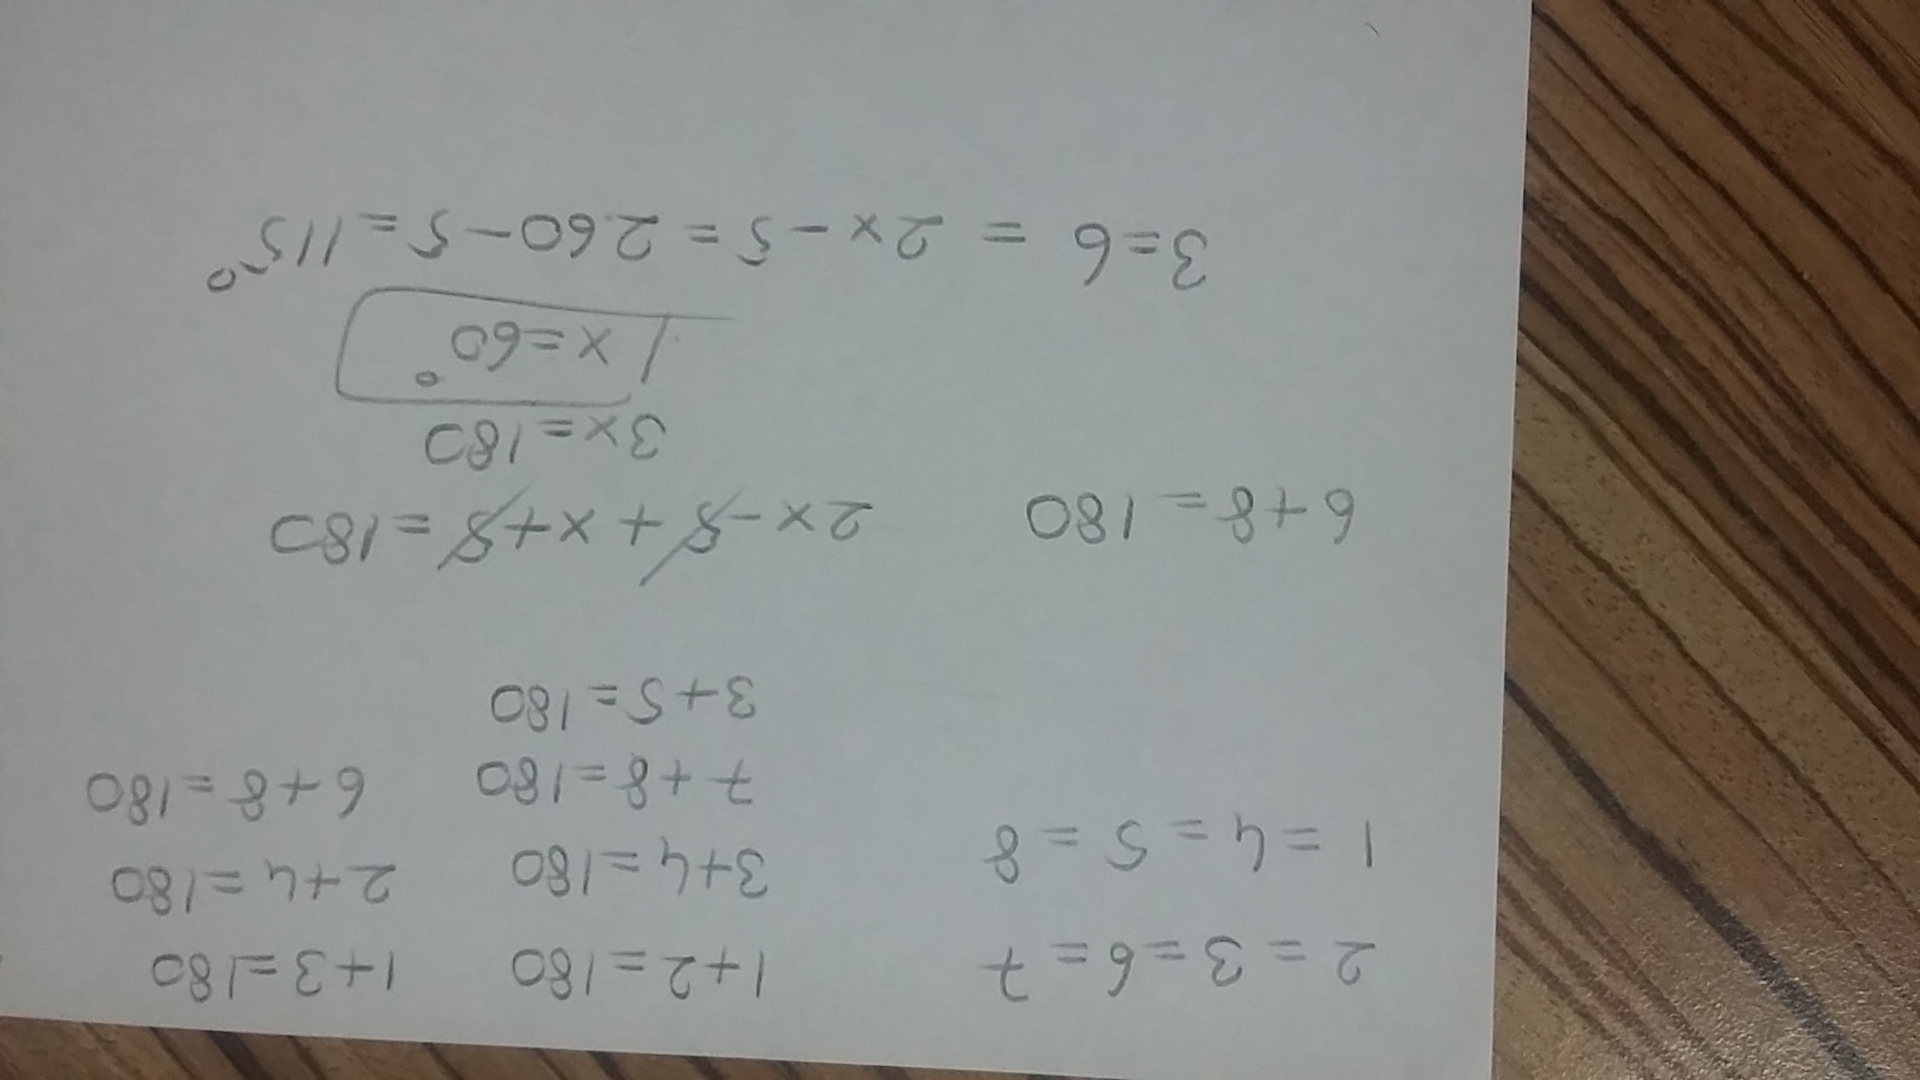 2 = 3 = 6 = 7 1+2=180 1+3=180
1 = 4 = 5 = 8 3+4=180 2+4=180
7+8=180 6+8=180
3+5=180
6+8=180 2x-5+x+5=180
3x=180
x=60°
3=6 = 2x-5 = 2.60-5=115°